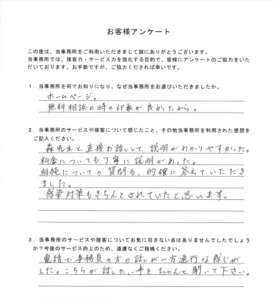 お客様アンケート
この度は、当事務所をご利用いただきまして誠にありがとうございます。
当事務所では、接客力・サービス力を強化する目的で、皆様にアンケートのご協力をいた
だいております。お手数ですが、ご協力くだされば幸いです。
1．当事務所を何でお知りになり、なぜ当事務所をお選びいただきましたか。
ホームページ。
無料相談の時の印象が良かったから。
2．当事務所のサービスや接客について感じたこと、その他当事務所を利用された感想を
ご記入ください。
森先生と直接お話しして説明がわかりやすかった。
料金についても丁寧に説明があった。
相続についての質問も、的確に答えていただき
ました。
感染対策もきちんとされていたと思います。
3．当事務所のサービスや接客についてお気に召さない点はありませんでしたでしょう
か？今後のサービス向上のため、遠慮なくご指摘ください。
電話で事務員の方の話しが一方通行な感じが
した。こちらが話した事をちゃんと聞いて下さい。